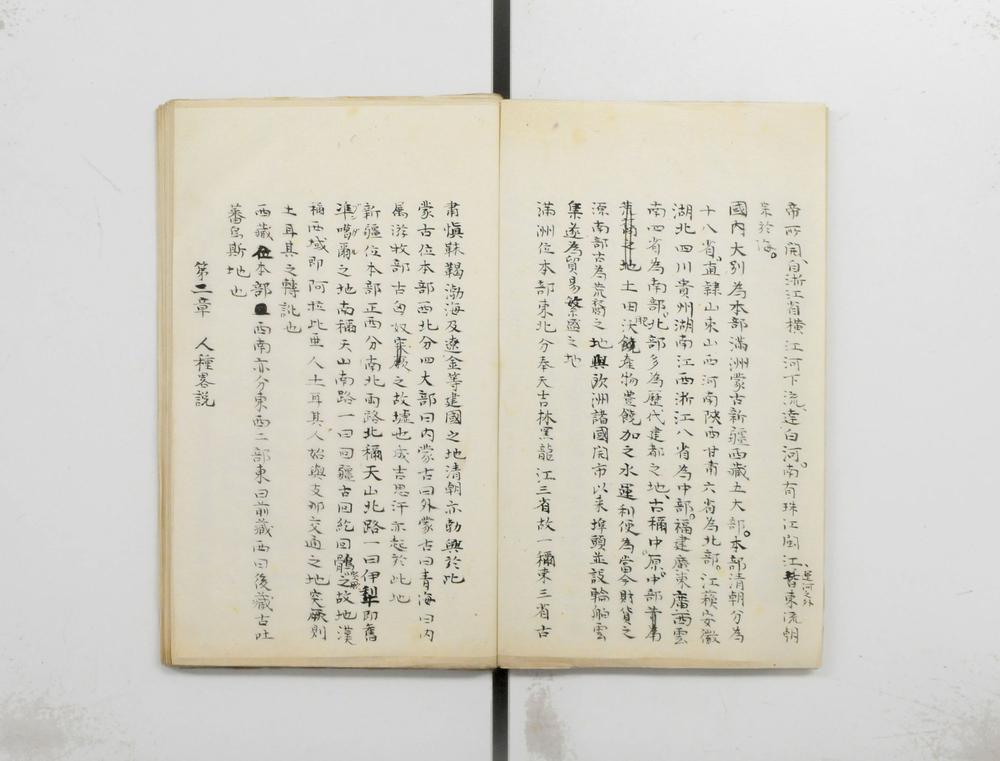 帝所開、自浙江省横江河下流、達白河。南有珠江閩江、皆東流朝
運河之外
宗於海。
國内大別為本部滿洲蒙古新疆西藏五大部。本部清朝分為
十八省。直隷山東山西河南陝西甘肅六省為北部。江蘓安徽
湖北四川貴州湖南江西浙江八省為中部。福建廣東廣西雲
南四省為南部。北部多為歴代建都之地、古稱中原。中部
之地土田沃饒產物豊饒加之水運利便為當今財貨之
肥
源南部古為荒裔之地與欧洲諸國開市以来埠頭並設輪舶雲
集遂為貿易繁盛之地
滿洲位本部東北分奉天吉林黑龍江三省故一稱東三省古
肅愼靺鞨渤海及遼金等建國之地清朝亦勃興於此
蒙古位本部西北分四大部曰内蒙古曰外蒙古曰青海曰内
属游牧部古匈奴突厥之故墟也成吉思汗亦起於此地
新疆位本部正西分南北兩路北稱天山北路一曰伊犁即舊
準噶爾之地南稱天山南路一曰回疆古回紇回鶻之故地漢
稱西域即阿拉比亜人土耳其人始與支那交通之地突厥則
土耳其之轉訛也
西藏位本部西南亦分東西二部東曰前藏西曰後藏古吐
蕃烏斯地也
第二章 人種畧説